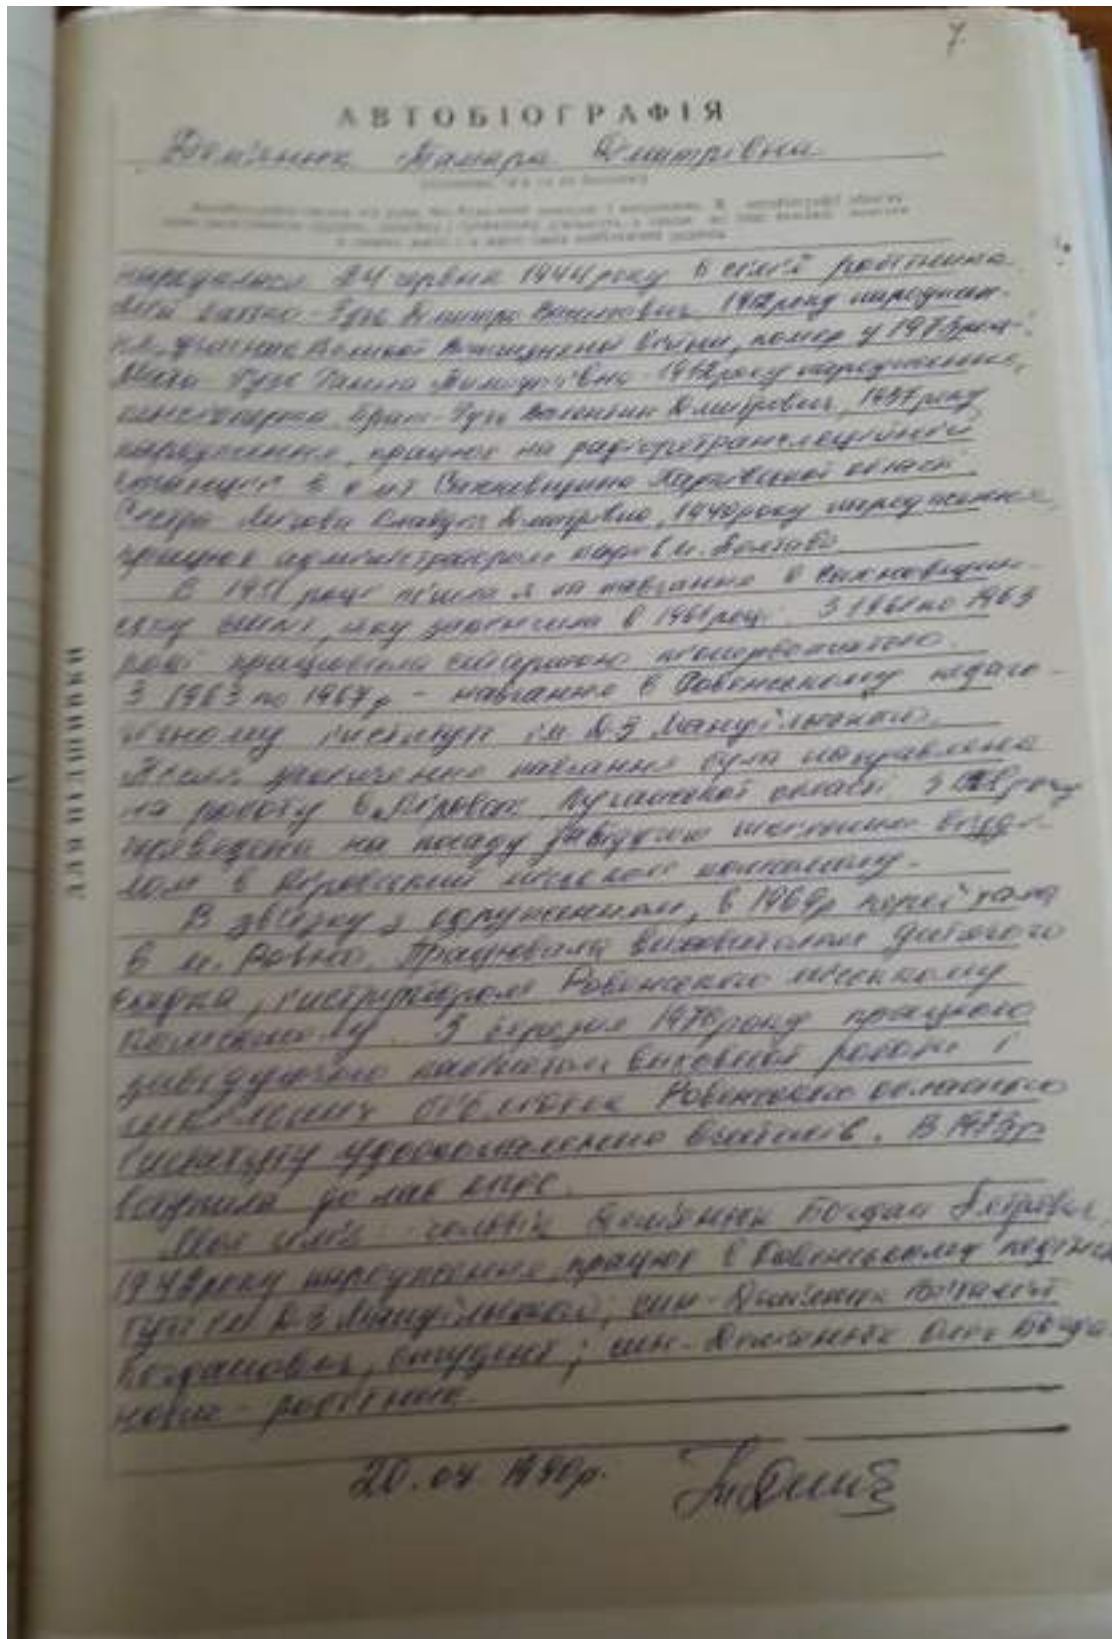 7
АВТОБІОГРАФІЯ
Дем'янюк Тамара Дмитрівна
народилася 24 червня 1944 року в сім'ї робітника.
Мій батько - Гузь Дмитро Васильович, 1912 року народжен-
ня, учасник Великої Вітчизняної війни, помер у році.
Мати Гузь Ганна 1912 року народження,
пенсіонерка. Брат - Гузь Валентин Дмитрович, 1937 року
народження, працює на радіоретрансляційній
станції в смт Сахновщина Харківської області.
Сестра Клавдія Дмитрівна, 1940 року народження,
працює адміністратором в м. Полтава.
В 1951 році пішла я на навчання в Сахновщин-
ську школу, яку закінчила в 1961 році. З 1961 по 1963
рік працювала старшою піонервожатою.
З 1963 по 1967 р - навчання в Ровенському педаго-
гічному інституті ім. Д.З. Мануїльського.
Після закінчення навчання була направлена
на роботу в м. Кіровськ Луганської області. З року
переведена на посаду завідуючою шкільним відді-
лом в Кіровський міськом комсомолу.
В зв'язку з одруженням, в 1969 р переїхала
в м. Ровно. Працювала вихователем дитячого
садка, інструктором Ровенського міському
комсомолу. З березня року працюю
завідуючою кабінетом виховної роботи і
шкільних бібліотек Ровенського обласного
інституту удосконалення вчителів. В 1973 р
вступила до лав КПРС.
Моя сім'я: чоловік Дем'янюк Богдан Петрович,
1942 року народження, працює в Ровенському педінсти
туті ім Д.З Мануїльського; син - Дем'янюк Віталій
Богданович, студент; син - Дем'янюк Олег Богда
нович - робітник.
20.04 1990 р.
ДЛЯ ПІДШИВКИ